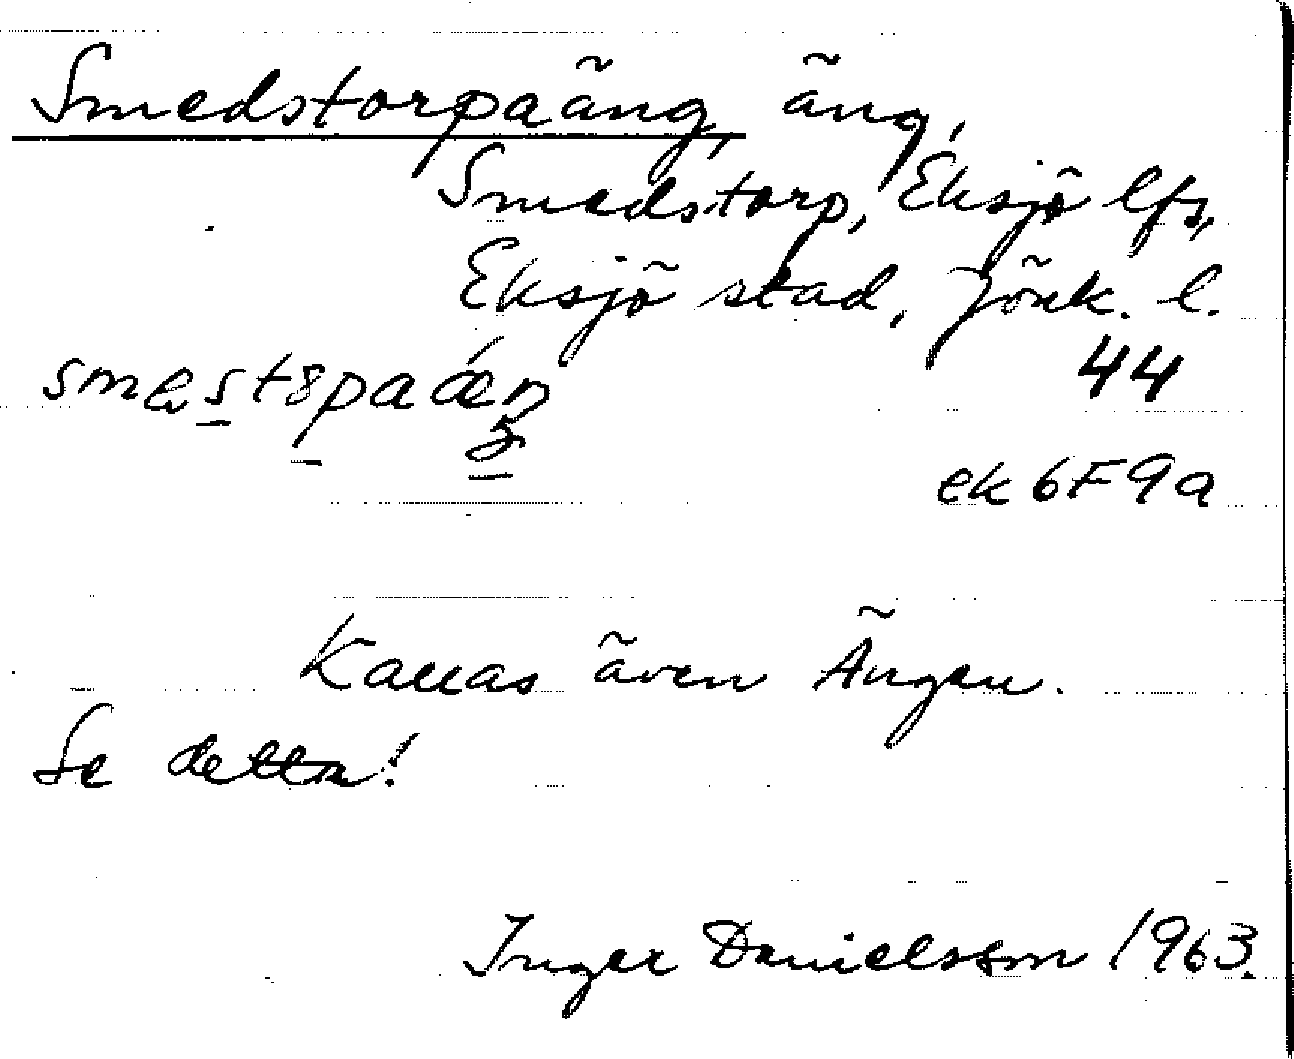 Smedstorpaäng, äng,
Smedstorp, Eksjö lfs,
Eksjö stad, Jönk. l.
44
ek 6F9a
Kallas även Ängen.
Se detta!
Inger Danielsson 1963.